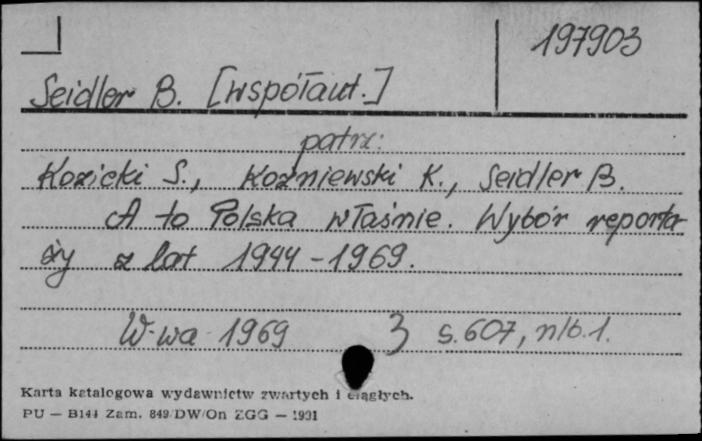 197903
Seidler B. [współaut.]
patrz:
Kozicki S., Koźniewski K., Seidler B.
A to Polska właśnie. Wybór reporta-
ży z lat 1944-1969.
W-wa 1969 3 s. 607, nlb. 1.
Karta katalogowa wydawnictw zwartych i ciągłych.
PU — B144 Zam. 849/DW/On ZGG — 1991